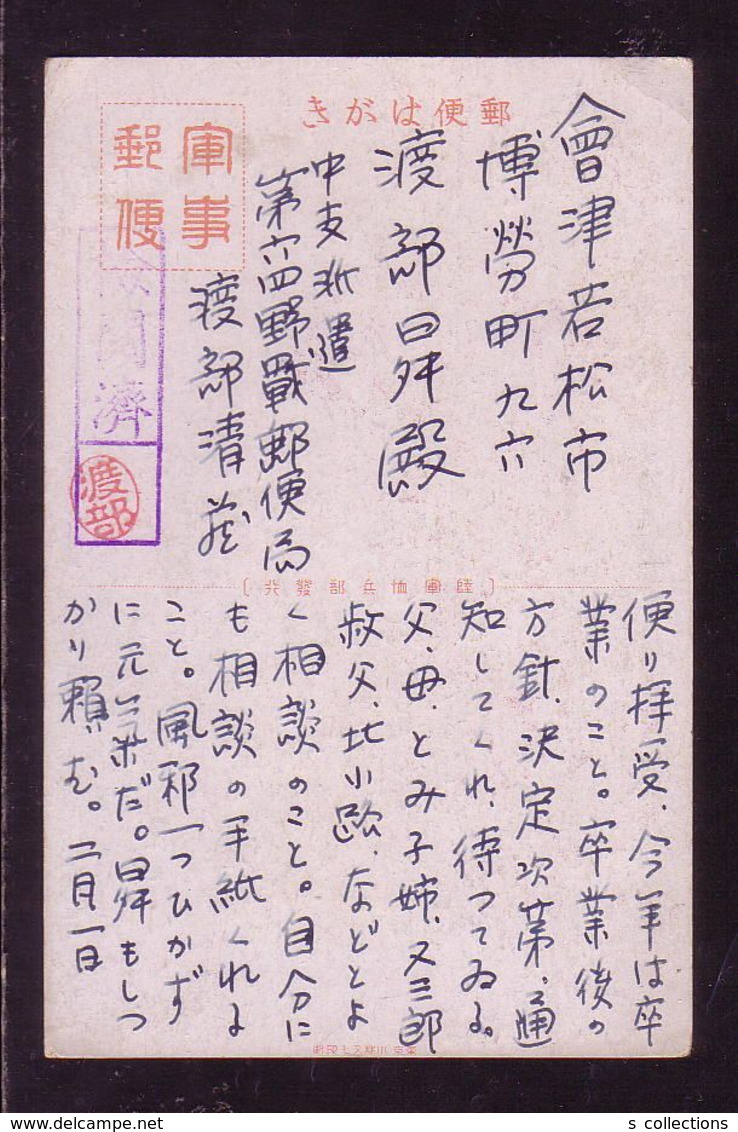 郵便はがき
軍事
郵便
會津若松市
博勞町九六
渡部昇殿
中支派遣
第六四野戰郵便局
渡部清蔵
閲濟
渡部
〔陸軍恤兵部發行〕
便り拝受、今年は卒
業のこと。卒業後の
方針、決定次第、通
知してくれ、待つてゐる。
父、母、とみ子姉、又三郎
叔父、北小路、などとよ
く相談のこと。自分に
も相談の手紙くれる
こと。風邪一つひかず
に元気だ。昇もしつ
かり頼む。二月一日
s collections